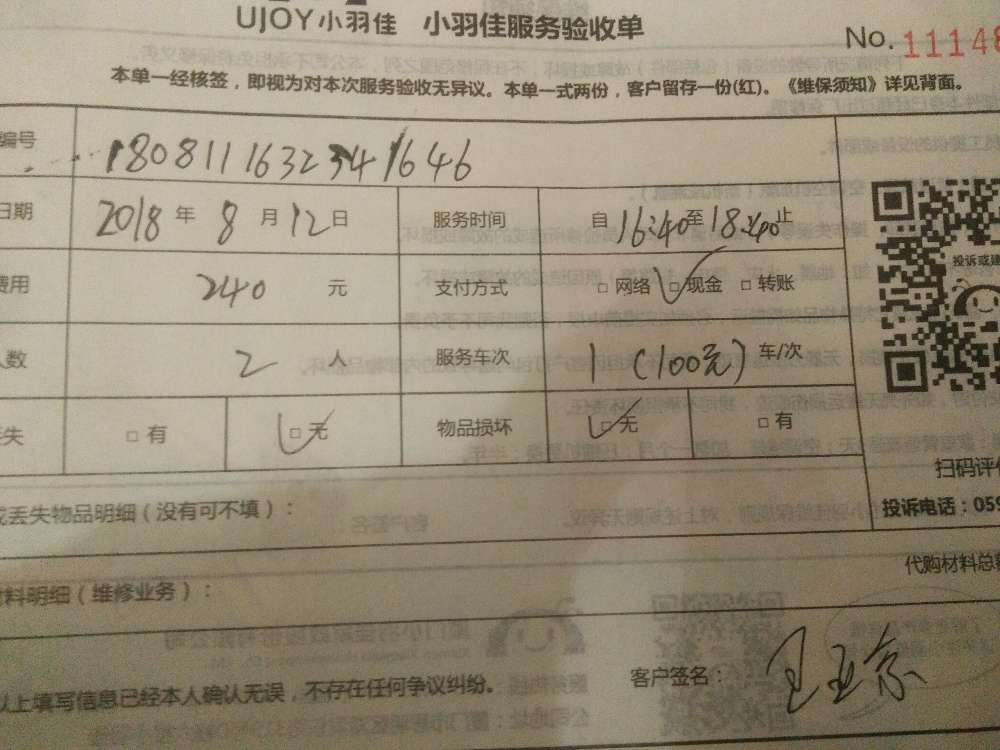 UJOY小羽佳 小羽佳服务验收单
No. 11148
本单一经核签，即视为对本次服务验收无异议。本单一式两份，客户留存一份(红)。《维保须知》详见背面。
编号 1808111632341646
日期 2018 年 8 月 12 日 服务时间 自 16:40 至 18:40 止
费用 240 元 支付方式 □ 网络 □ 现金 □ 转账
人数 2 人 服务车次 1 (100元) 车/次
丢失 □ 有 □ 无 物品损坏 □ 无 □ 有
投诉或建
扫码评价
投诉电话：059
或丢失物品明细（没有可不填）：
代购材料总额
材料明细（维修业务）：
以上填写信息已经本人确认无误，不存在任何争议纠纷。
客户签名：